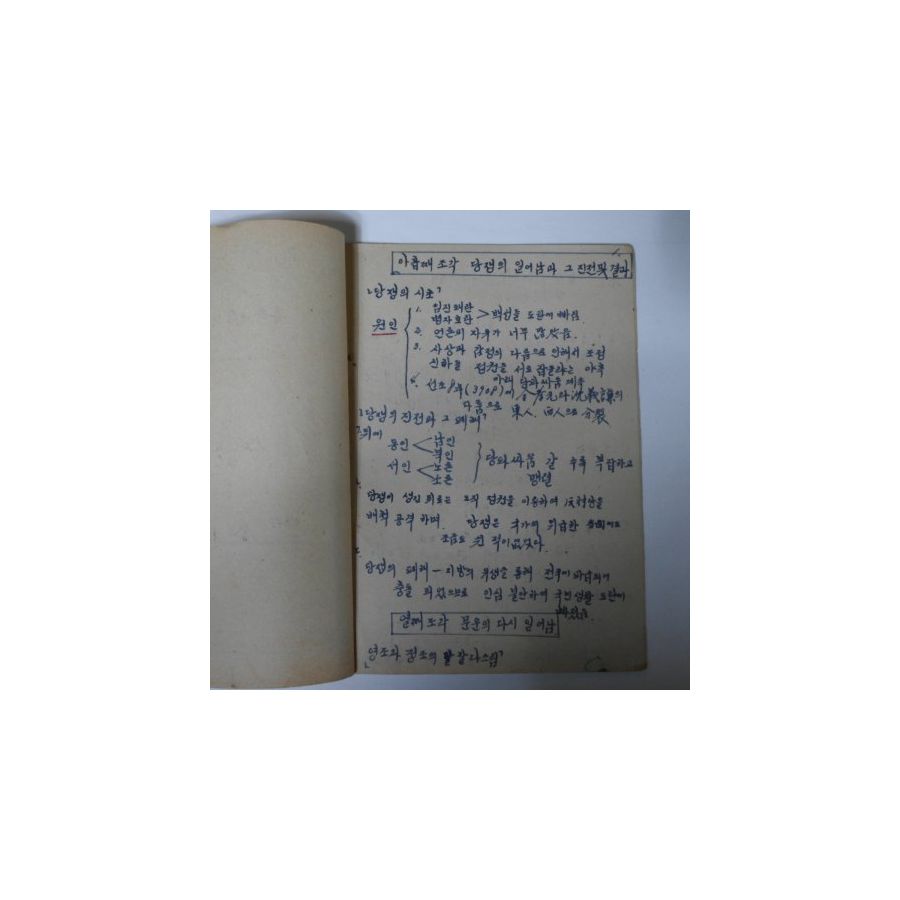 아홉째 조각 당쟁의 일어남과 그 진전및 결과
「당쟁의 시초」
원인
1. 임진왜란
병자호란 > 백성들 도탄에 빠짐
2. 언론의 자유가 너무 많았음.
3. 사상과 감정의 다음으로 인해서 조정
신하들 정권을 서로 잡을라는 야욕
아래 당파싸움 계속
4. 선조 8年(3908)에 金孝元과 沈義謙의
다툼으로 東人, 西人으로 分裂
「당쟁의 진전과 그 폐해」
동인 < 남인
북인
서인 < 노론
소론
당파싸움 갈 수록 복잡하고
맹렬
당쟁이 생긴 뒤로는 오직 정권을 이용하여 反對당을
배척 공격하며. 당쟁은 국가에 위급한
조금도 쉰 적이 없었다.
당쟁의 폐해 — 지방의 유생을 통해 전국에 파급되어
충돌 되었으므로 인심 불안하여 국민생활 도탄에
빠졌음.
열째 조각 문운의 다시 일어남
「영조와 정조의 잘 다스림」